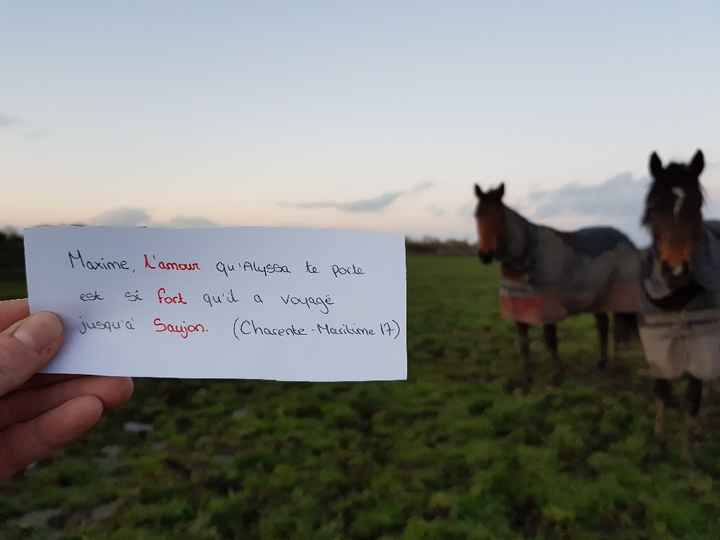 Maxime, l'amour qu'Alyssa te porte
est si fort qu'il a voyagé
jusqu'à Saujon. (Charente-Maritime 17)